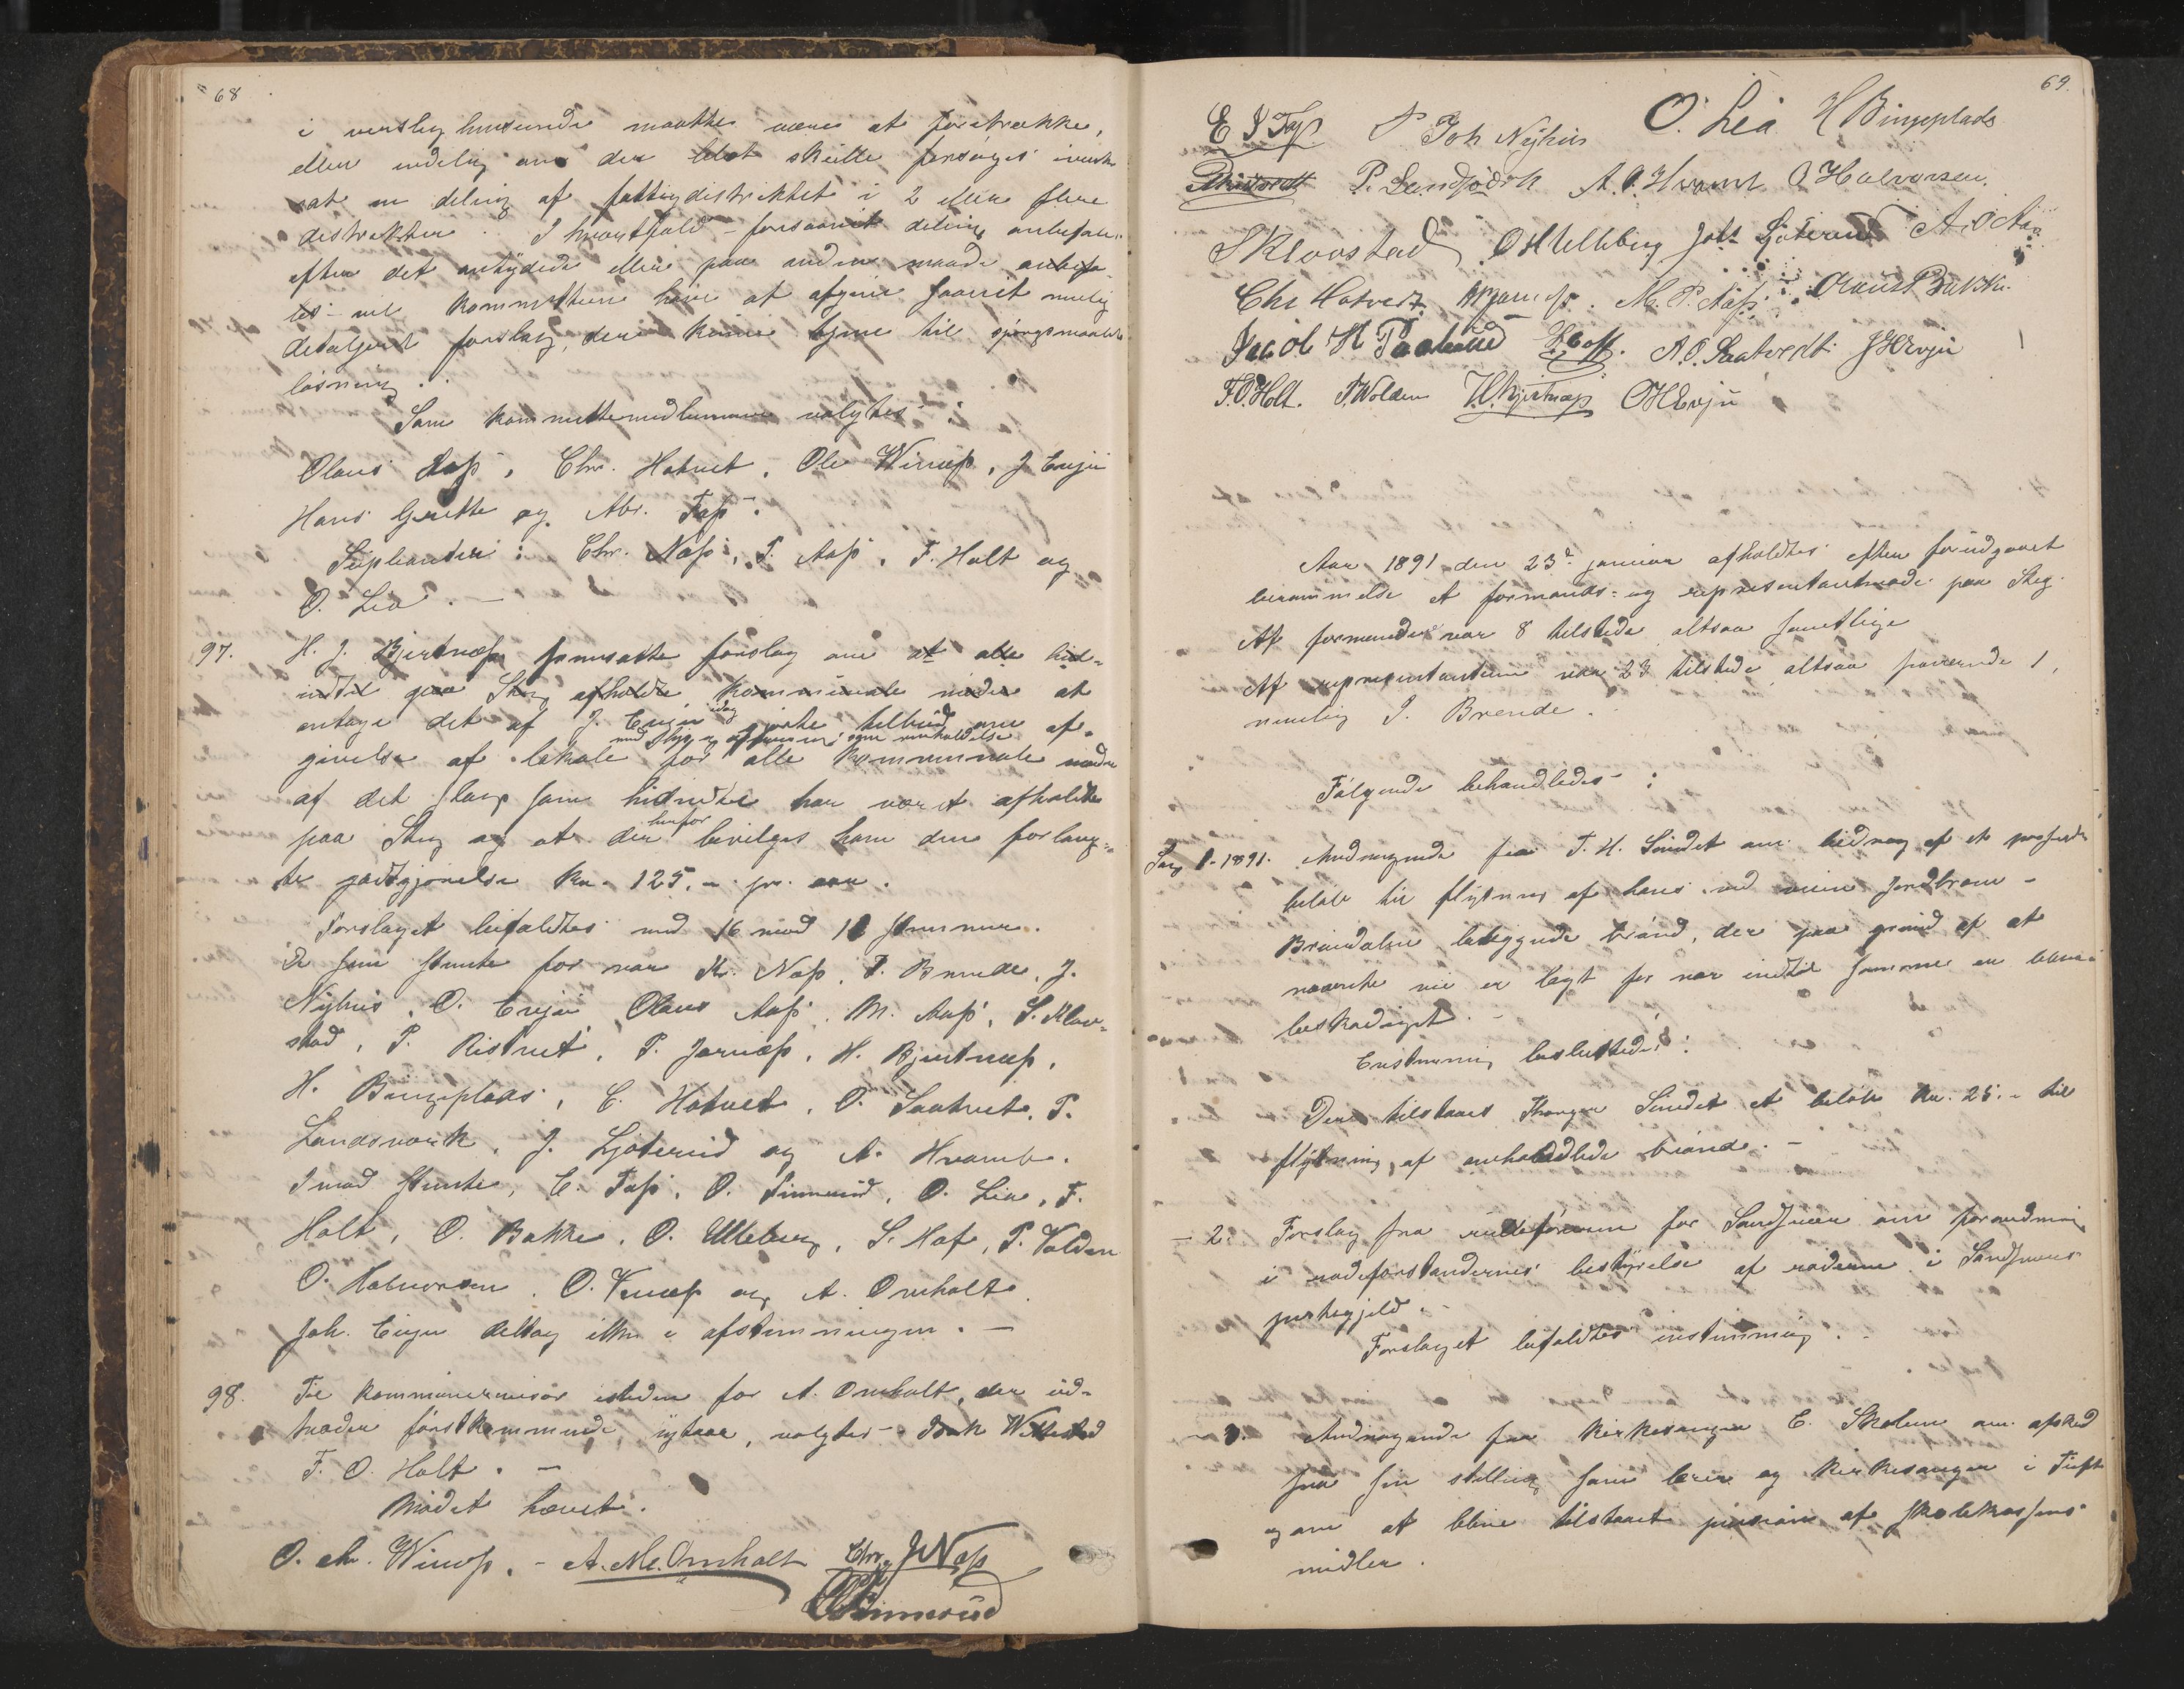 68
i verslig henseende maatte være at foretrække,
eller endelig om der blot skulde forsøges iverk-
sat en deling af fattigdistriktet i 2 eller flere
distrikter. I hvertfald – forsaavidt deling anbefales
efter det antydede eller paa anden maade anbefa-
les – vil kommitteen have at afgive saavidt mulig
detaljeret forslag, der kunne tjene til spørgsmaalets
løsning.
Som kommittemedlemmer valgtes:
Olaus Aaß, Chr. Hotvet, Ole Winnæß, J. Evju
Hans Grette og Abr. Foß.
Suplianter: Chr. Næß, P. Aaß, F. Holt og
O. Lia. –
97. H. J. Bjertnæß fremsatte forslag om at alle hid-
indtil paa Steg afholdte kommunale møder at
antage det af J. Evju idag gjorte tilbud om af-
med lys og opvarmning samt renholdelse
givelse af lokale for alle kommunale møder
af det slags som hidindtil har været afholdte
herfor
paa Steg og at der bevilges ham den forlang-
te godtgjørelse kr. 125.– pr. aar.
Forslaget bifaldtes med 16 mod 11 stemmer.
De som stemte for var Kr. Næß, P. Brende, J.
Nyhus, O. Evju, Olaus Aaß, M. Aaß, S. Klov-
stad, P. Ristvet, P. Jarnæß, H. Bjertnæß,
H. Bingeplads, C. Hotvet, O. Saatvet, P.
Landsværk, J. Ljøterud og A. Hvamb.
Imod stemte, E. Foß, O. Linnerud, O. Lia, F.
Holt, O. Bakke, O. Ulleberg, S. Hof, P. Volden
O. Halvorsen, O. Winnæß og A. Omholt.
Joh. Evju deltog ikke i afstemningen. –
98. Til kommunerevisor isteden for A. Omholt, der ud-
træder førstkommende nytaar, valgtes –
F. O. Holt. –
Mødet hævet.
O. Chr. Winnæß. – A. Mc. Omholt Chr. J Næß
O Linnerud
69.
E J Foß P Joh Nyhus O. Lia H Bingeplads
PRistvedt P. Landsværk A. O. Hvamb O Halvorsen.
S Klovstad O H Ulleberg Joh Ljøterud A. O. Aas
Chr Hotvet PJarnæs. M. P. Aaß. Olaus Bakke.
Jacob H Paalerud SHoff. A. O. Saatvedt JHEvju
F. O. Holt. P. Wolden H. Bjertnæs O H Evju
Aar 1891 den 23de januar afholdtes efter forudgaaet
berammelse et formands- og repræsentantmøde paa Steg.
Af formænder var 8 tilstede altsaa samtlige
Af repræsentanterne var 23 tilstede altsaa fraværende 1,
nemlig P. Brende.
Følgende behandledes:
Sag 1.-1891. Andragende fra T. H. Sundet om bidrag af et passende
beløb til flytning af hans ved veien Jordbrom –
Brundalen beliggende brønd, der paa grund af at
nævnte vei er lagt for nær indtil samme er bleven
beskadiget. –
Enstemmig besluttedes:
Der tilstaaes Thorger Sundet et beløb kr. 25.– til
flytning af omhandlede brønd. –
– 2. Forslag fra rulleføreren for Sandsvær om forandring
i rodeforstandernes bestyrelse af roderne i Sandsværs
prestegjeld. –
Forslaget bifaldtes enstemmig. –
– 3. Andragende fra kirkesanger E. Skolem om afsked
fra sin stilling som lærer og kirkesanger i Tuft
og om at blive tilstaaet pension af skolekassens
midler.